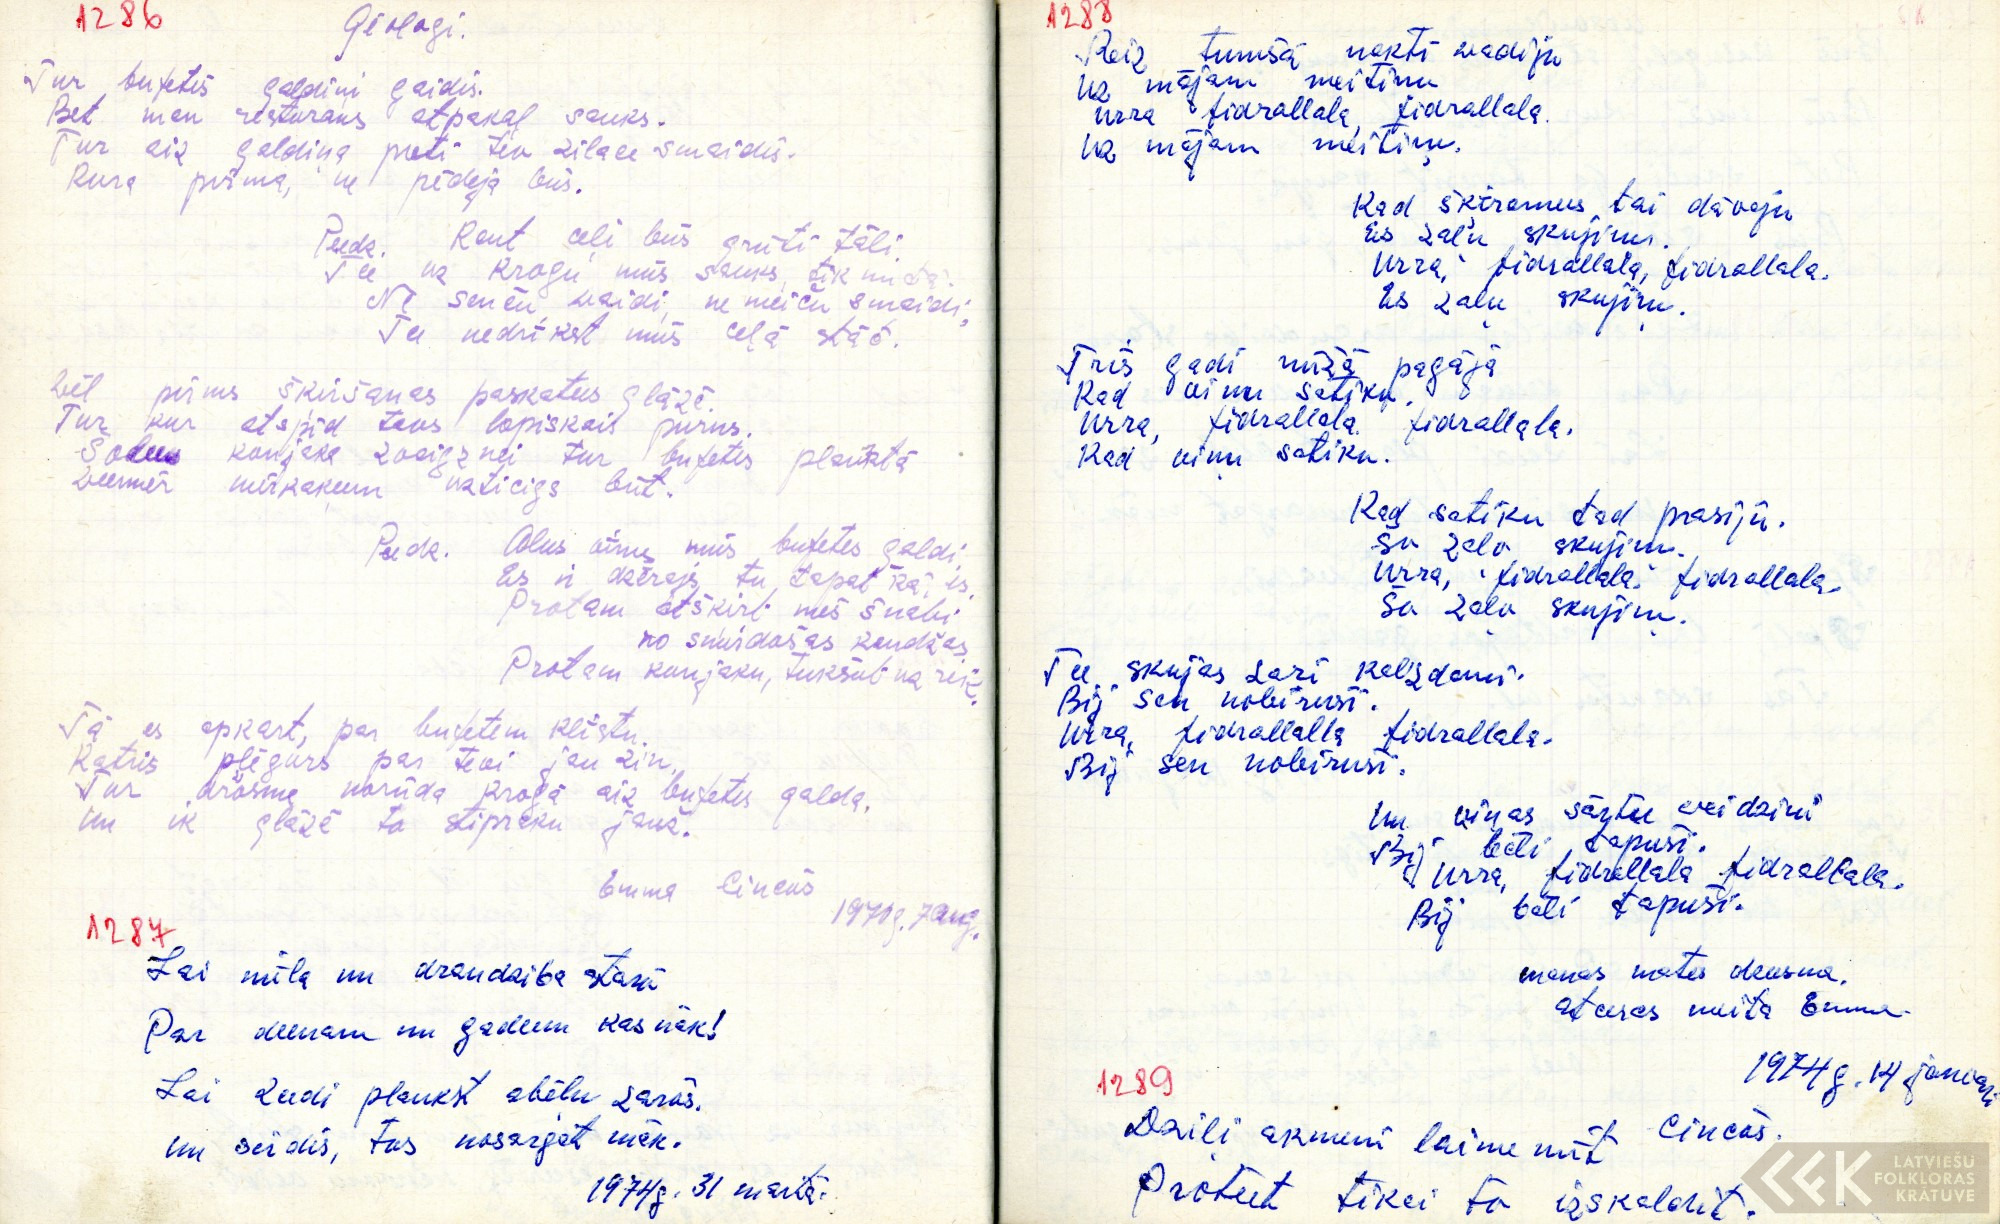 1286
Geologi.
Tur bufetes galdiņi gaidīs.
Bet man restorāns atpakaļ sauks.
Tur aiz galdiņa pretī tev zilace smaidīs.
Kura pirmā, ne pēdejā būs.
Piedz. Kaut ceļi būs grūti tāli.
Tee uz krogu mūs sauks, tik
Ne senču vaidi, ne meiču smaidi,
Tee nedrīkst mūs ceļā stāt.
Vēl pirms škiršanas paskaties glāzē.
Tur kur atspīd tavs lopiskais purns.
Šodien konjaka zvaigznei tur bufetes plauktā
Veenmēr mērķakeem uzticigs būt.
Piedz. Alus vieno mūs bufetes galdi,
Es ir dzērajs, tu tapat kā es.
Protam atškirt mēs šnabi
no smirdošas kandžas
Protam konjaku, tukšot uz reiz.
Tā es apkart, pa bufetem klīstu.
Katris plēgurs par tevi jau zin.
Tur drosme norūda krogā aiz bufetes galda,
un ik glāzē to stipraku jauc.
Emma Cincās
1971g. 7 aug.
1287
Lai mīla un draudzība starā
Par deenam un gadeem kas nāk!
Lai zeedi plaukst abeļu zarās.
un sirdīs, tos nosargāt māk.
1974g. 31 martā.
1288
Reiz tumšā naktī vadiju
Uz mājam meitiņu
Urra fidrallala, fidrallala.
Uz mājam meitiņu.
Kad šķiramies tai dāvaju
Es zaļu skujiņu.
Urra, fidrallala, fidrallala.
Es zaļu skujiņu.
Trīs gadi mūžā pagājā
Kad viņu satiku.
Urra, fidrallala fidrallala.
Kad viņu satiku.
Kad satiku tad prasiju.
Šo zaļo skujiņu.
Urra, fidrallala fidrallala.
Šo zaļo skujiņu.
Tee skujas zari kalzdami.
Bij sen nobiruši.
Urra, fidrallalla fidrallala.
Bij sen nobiruši.
Un viņas sārtee veidziņi
Bij bāli tapuši.
Urra, fidrallala fidrallala.
Bij bāli tapuši.
manas mates dzeesma.
atceras meita Emma.
1974g. 14 janvari
Cincās.
1289
Dziļi akmenī laime mīt
Proteet tikai to izskaldīt.
LATVIEŠU
FOLKLORAS
KRĀTUVE